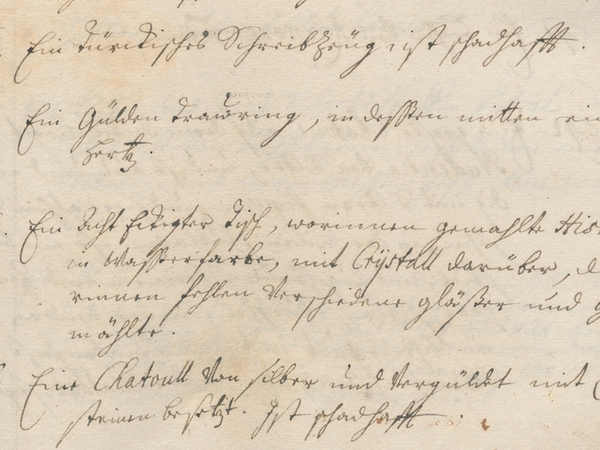 Ein türckisches Schreibzeüg, ist schadhafft.
Ein Gülden trauring, in deßen mitten ein
hertz.
Ein Acht Eckigter tisch, worinnen gemahlte His
in Waßerfarbe, mit Crÿstall darüber, d
rinnen fehlen Verschiedene gläßer und g
mählte.
Eine Chatoull Von silber und Vergüldet mit
steinen besetzt. Ist schadhafft.